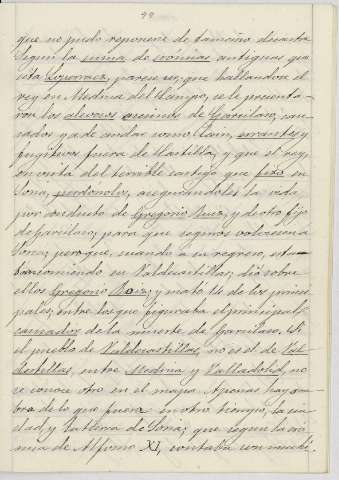 99
que no pudo reponerse de tamaño desastre.
Segun la suma de crónicas antiguas que
cita Loperraez, parece ser, que hallandose el
rey en Medina del Campo, se le presenta-
ron los alevosos asesinos de Garcilaso, can-
sados ya de andar como Cain, errantes y
fugitivos fuera de Castilla, y que el rey,
en vista del terrible castigo que hizo en
Soria, perdonolos, asegurandoles la vida
por conducto de Gregorio Ruiz, y de otro fijo
de Garcilaso; para que seguros volviesen a
Soria; pero que, cuando a su regreso, esta-
ban comiendo en Valdecastillas, dió sobre
ellos Gregorio Ruiz, y mató 14 de los princi-
pales, entre los que figuraba el principal
causador de la muerte de Garcilaso. Si
el pueblo de Valdecastillas, no es el de Val-
destillas, entre Medina y Valladolid, no
se conoce otro en el mapa. Apenas hay som-
bra de lo que fuera en otro tiempo, la ciu-
dad, y la tierra de Soria; que segun la cró-
nica de Alfonso XI, contaba con muchí-